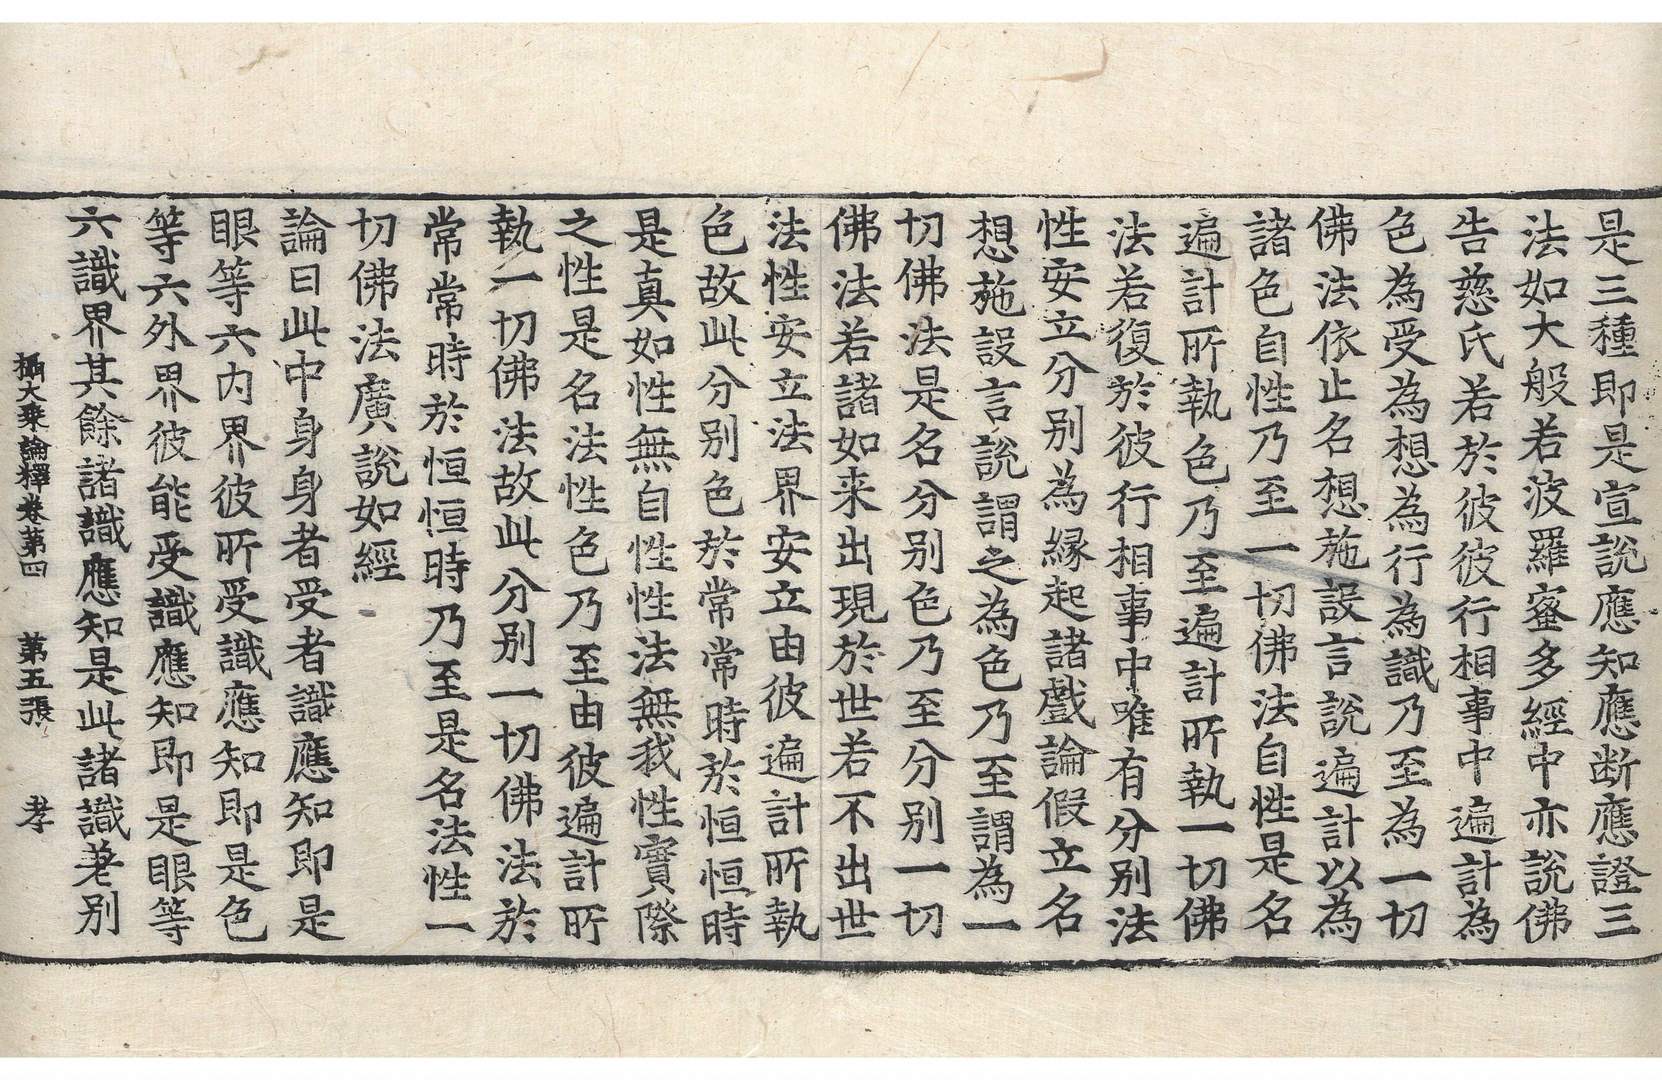 是三種即是宣說應知應断應證三
法如大般若波羅蜜多經中亦說佛
告慈氏若於彼彼行相事中遍計為
色為受為想為行為識乃至為一切
佛法依止名想施設言說遍計以為
諸色自性乃至一切佛法自性是名
遍計所執色乃至遍計所執一切佛
法若復於彼行相事中唯有分別法
性安立分別為緣起諸戲論假立名
想施設言說謂之為色乃至謂為一
切佛法是名分別色乃至分別一切
佛法若諸如来出現於世若不出世
法性安立法界安立由彼遍計所執
色故此分別色於常常時於恒恒時
是真如性無自性性法無我性實際
之性是名法性色乃至由彼遍計所
執一切佛法故此分別一切佛法於
常常時於恒恒時乃至是名法性一
切佛法廣說如經
論曰此中身身者受者識應知即是
眼等六內界彼所受識應知即是色
等六外界彼能受識應知即是眼等
六識界其餘諸識應知是此諸識差別
攝大乗論釋卷第四　第五張　孝